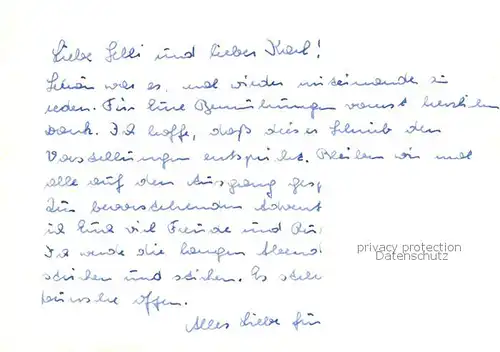 Liebe Lilli und lieber Karl!
Schön war es, mal wieder miteinander zu
reden. Für Eure Bemühungen vorerst herzlichen
Dank. Ich hoffe, daß dieser Schrieb den
Vorstellungen entspricht. Bleiben wir mal
alle auf den Ausgang ges
Zum bevorstehenden Advent
ich Euch viel Freude und
Ich werde die langen Abend
stricken und sticken. Es
Wünsche offen.
privacy protection
Datenschutz
Alles Liebe für